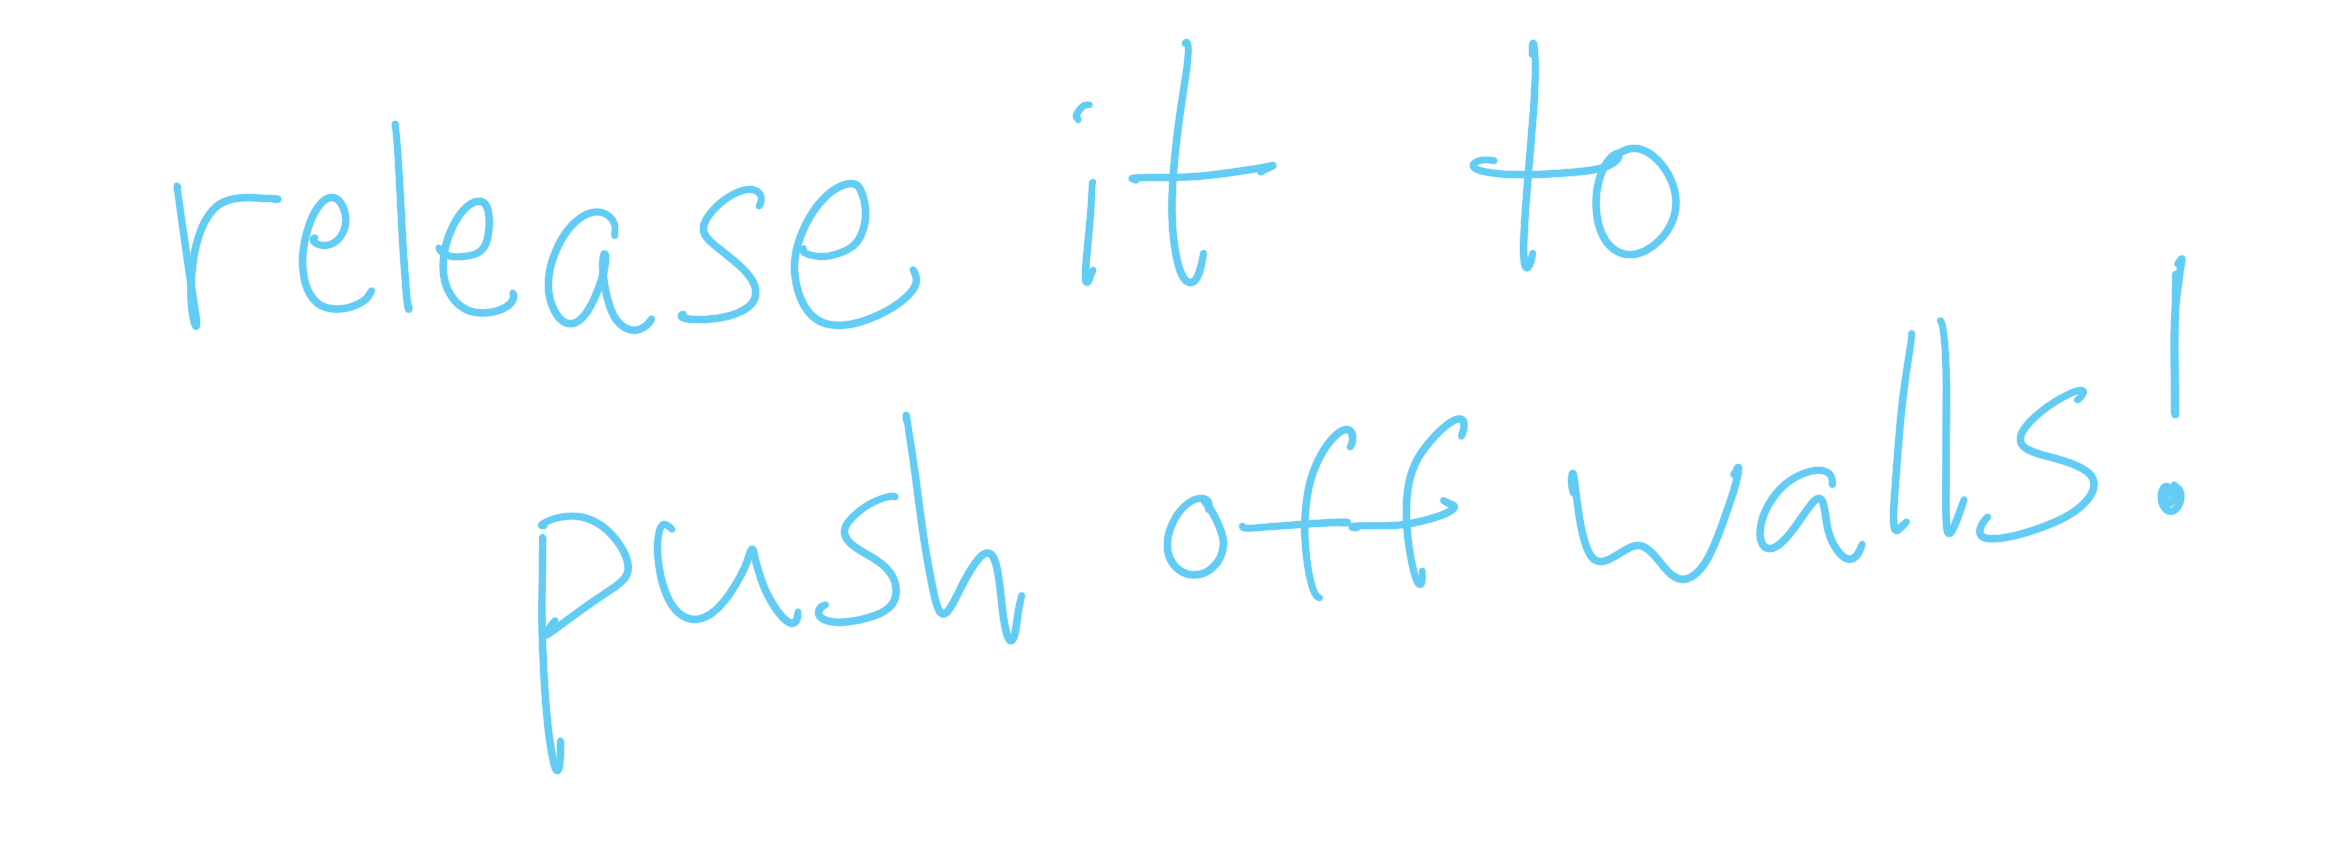 release it to
push off walls!